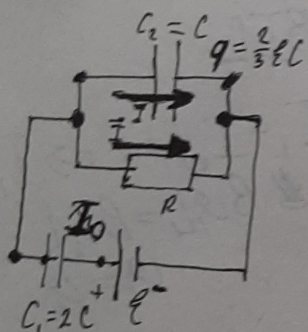 C₂ = C
q = 2/3 ℰC
I
I
R
I₀
C₁ = 2C
+
ℰ
-